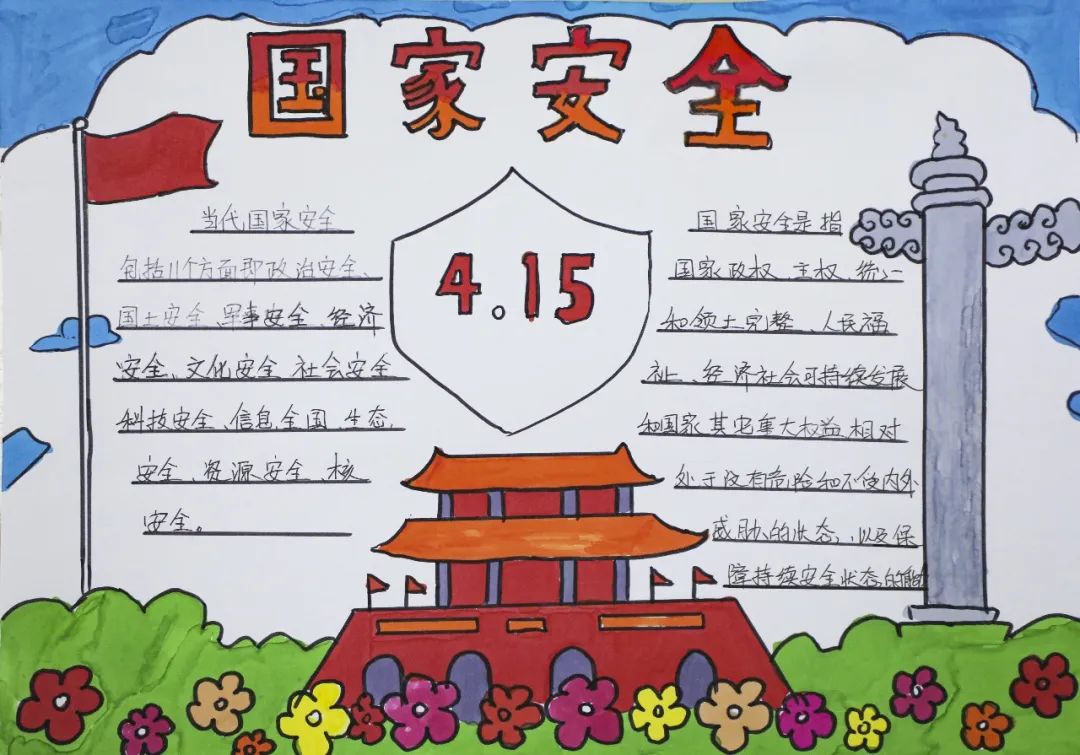 国家安全
4.15
当代国家安全
包括11个方面即政治安全、
国土安全、军事安全、经济
安全、文化安全、社会安全
科技安全、信息全国、生态
安全、资源安全、核
安全。
国家安全是指
国家政权、主权、统一
和领土完整、人民福
祉、经济社会可持续发展
和国家其它重大权益相对
处于没有危险和不受内外
威胁的状态，以及保
障持续安全状态的能